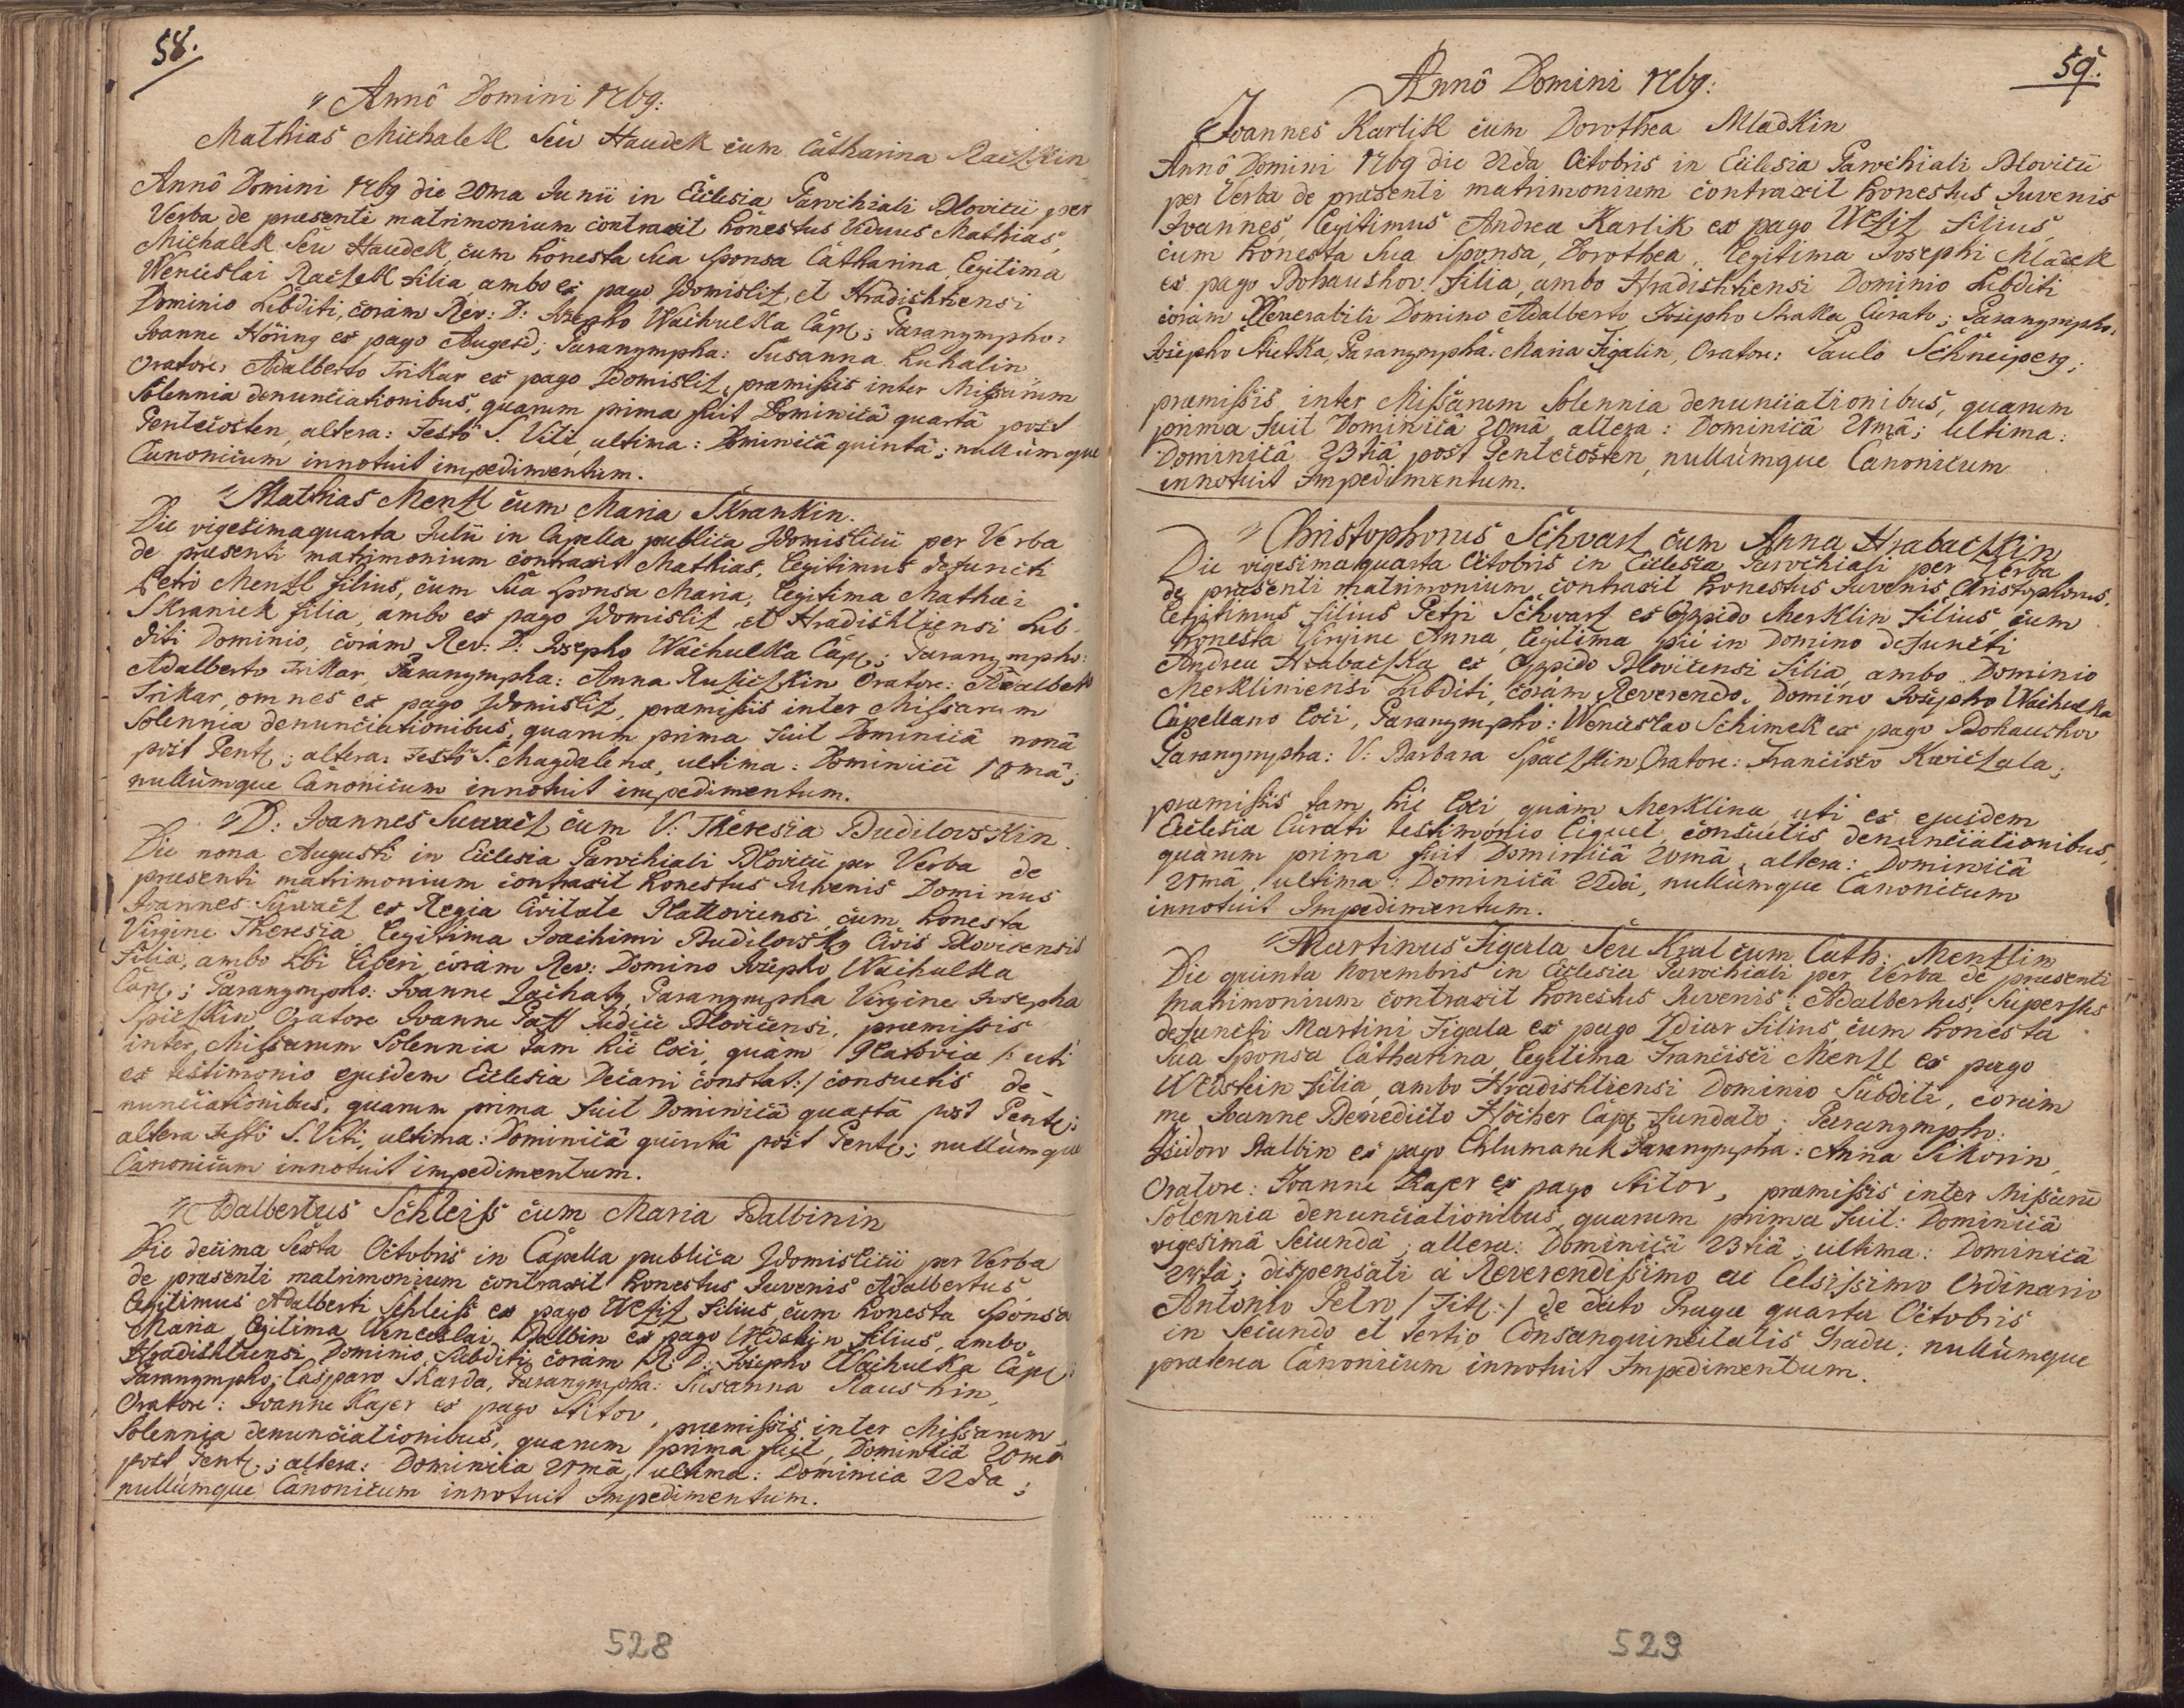 58.
Annô Domini 1769:
Mathias Michalek Seu Haudek cum Catharina RaczKin
Annô Domini 1769 die 20ma Junii in Ecclesia Parochiali Blovicii per
Verba de praesenti matrimonium contraxit honestus Viduus Mathias
Michalek Seu Haudek, cum honesta Sua Sponsa Catharina, legitima
Wenceslai Raczek filia, ambo ex pago Zdomisliz, et Hradishtiensi
Dominio Subditi, coràm Rev: D: Josepho WachulKa Cap:; Paranympho:
Joanne Höring ex pago Augezd; Paranympha: Susanna Luhalin
Oratore: Adalberto TriKar ex pago Zdomisliz, praemissis inter Missarum
Solennia denunciationibus, quarum prima fuit Dominicâ quartâ post
Pentecosten, altera: Festô S. Viti, ultima: Dominicâ quintâ; nullùmque
Canonicum innotuit impedimentum.
Mathias Menzl cum Maria SKranKin.
Die vigesimaquarta Julii in Capella publica Zdomislicii per Verba
de praesenti matrimonium contraxit Mathias, legitimus defuncti
Petri Menzl filius, cum Sua Sponsa Maria, legitima Mathaei
SKraniek filia, ambo ex pago Zdomisliz, et Hradishtiensi Sub-
diti Dominio, coràm Rev: D: Josepho WachulKa Cap:; Paranympho:
Adalberto TriKar, Paranympha: Anna RuziczKin Oratore: Adalberto
TriKar, omnes ex pago Zdomisliz, praemissis inter Missarum
Solennia denunciationibus, quarum prima fuit Dominicâ nonâ
post Pent:; altera: Festô S. Magdalenae, ultima: Dominicâ 10mâ;
nullùmque Canonicum innotuit impedimentum.
D: Joannes Suwacz cum V: Theresia BudilovsKin.
Die nona Augusti in Ecclesia Parochiali Blovicii per Verba de
praesenti matrimonium contraxit honestus Juvenis Dominus
Joannes Suwacz ex Regia Civitate Klattoviensi, cum honesta
Virgine Theresia, legitima Joachimi BudilovsKy Civis Blovicensis
Filia, ambo Sibi liberi, coràm Rev: Domino Josepho WachulKa
Cap:; Paranympho: Joanne Zachaty, Paranympha Virgine Josepha
SpiczKin, Oratore Joanne Pass Judice Blovicensi, praemissis
inter Missarum Solennia tam hic loci, quàm Klatoviae /: uti
ex testimonio ejusdem Ecclesiae Decani constat:/ consuetis de-
nunciationibus, quarum prima fuit Dominicâ quartâ post Pent:;
altera Festô S. Viti, ultima: Dominicâ quintâ post Pent:; nullùmque
Canonicum innotuit impedimentum.
Adalbertus Schleiss cum Maria Balbinin
Die decima Sexta Octobris in Capella publica Zdomislicii per Verba
de praesenti matrimonium contraxit honestus Juvenis Adalbertus
legitimus Adalberti Schleiss ex pago Wezizz filius, cum honesta Sponsa
Maria legitima Wenceslai Balbin ex pago Wildstein filius, ambo
Hradishtiensi Dominio Subditi, coràm R: D: Josepho WachulKa Cap:
Paranympho: Casparo SKarda, Paranympha: Susanna
Oratore: Joanne Kajer ex pago Stitov, praemissis inter Missarum
Solennia denunciationibus, quarum prima fuit, Dominicâ 20mâ
post Pent:; altera: Dominicâ 21mâ, ultima: Dominica 22da;
nullùmque Canonicum innotuit Impedimentum.
528
59.
Annô Domini 1769:
Joannes Karlik cum Dorothea MladKin
Annô Domini 1769 die 22da Octobris in Ecclesia Parochiali Blovicii
per Verba de praesenti matrimonium contraxit honestus Juvenis
Joannes, legitimus Andreae Karlik ex pago Weziz filius,
cum honesta Sua Sponsa, Dorothea, legitima Josephi Mladek
ex pago Bohaushov filia, ambo Hradishtiensi Dominio Subditi
coràm Venerabili Domino Adalberto Josepho Straka Curato; Paranympho:
Josepho StietKa, Paranympha: Maria Figalin, Oratore: Paulo Schneiperg;
praemissis inter Missarum Solennia denunciationibus, quarum
prima fuit Dominicâ 20mâ altera: Dominicâ 21mâ; ultima:
Dominicâ 23tiâ post Pentecosten, nullùmque Canonicum
innotuit Impedimentum.
Christophorus Schvarz cum Anna HrabaczKin
Die vigesimaquarta Octobris in Ecclesia Parochiali per Verba
de praesenti matrimonium contraxit honestus Juvenis Christophorus,
legitimus filius Petri Schvarz ex Oppido Merklin filius cum
honesta Virgine Anna, legitima pii in Domino defuncti
Andreae HrabaczKa ex Oppido Blovicensi filia, ambo Dominio
Merkliniensi Subditi, coràm Reverendo Domino Josepho WachulKa
Capellano loci, Paranympho: Wenceslao Schimek ex pago Bohaushov
Paranympha: V: Barbara SpaczKin, Oratore: Francisco Kwiczala;
praemissis tam hic loci quàm Merklinae, uti ex ejusdem
Ecclesiae Curati testimonio liquet, consuetis denunciationibus,
quarum prima fuit Dominicâ 20mâ, altera: Dominicâ
21mâ, ultima: Dominicâ 22dâ, nullùmque Canonicum
innotuit Impedimentum.
Martinus Figala Seu Kral cum Cath: Menzlin
Die quinta Novembris in Ecclesia Parochiali per Verba de praesenti
matrimonium contraxit honestus Juvenis Adalbertus, Superstes
defuncti Martini Figala ex pago Zdiar filius, cum honesta
Sua Sponsa Catharina, legitima Francisci Menzl ex pago
Wildstein filia, ambo Hradishtiensi Dominio Subditi, coràm
me Joanne Benedicto Höcher Cap: Fundato; Paranympho:
Isidoro Balbin ex pago Chlumanek Paranympha: Anna SiKorin,
Oratore: Joanne Kajer ex pago Stitov, praemissis inter Missarū
Solennia denunciationibus, quarum prima fuit: Dominicâ
vigesimâ Secundâ; altera: Dominicâ 23tiâ; ultima: Dominicâ
24tâ; dispensati à Reverendissimo ac Celsissimo Ordinario
Antonio Petro /Titl:/ de dato Pragae quarta Octobris
in Secundo et tertio Consanguineitatis Gradu; nullùmque
praeterea Canonicum innotuit Impedimentum.
529